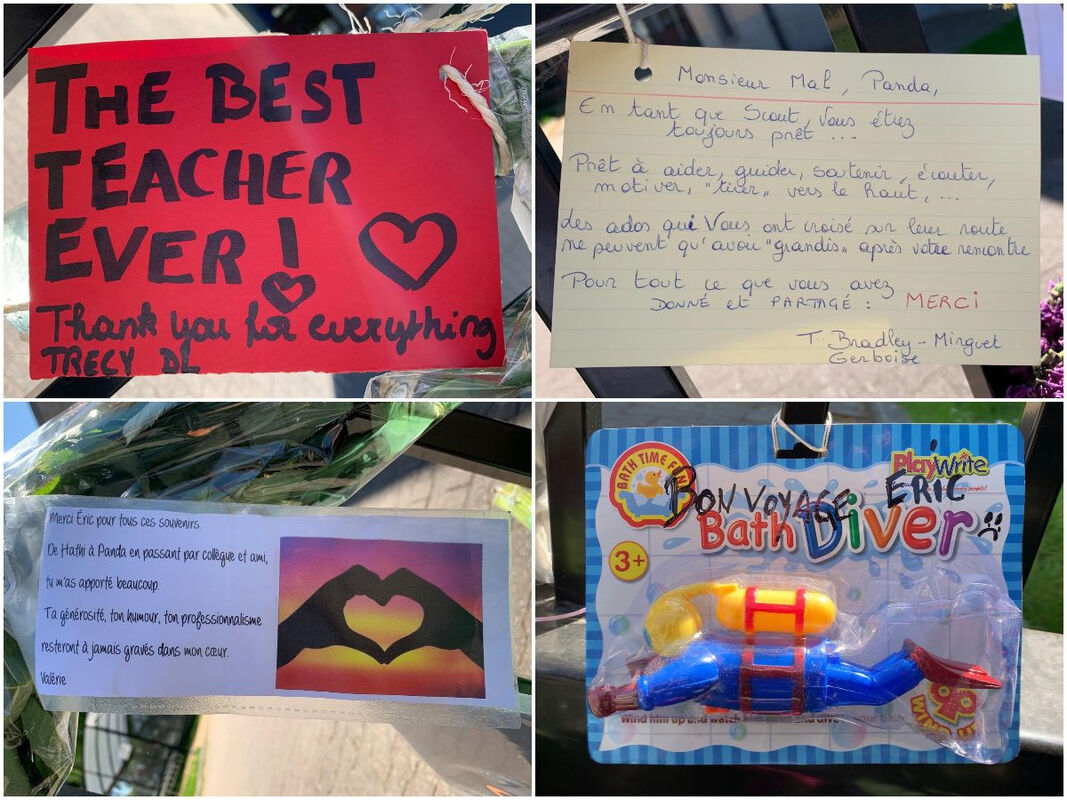 THE BEST
TEACHER
EVER !
Thank you for everything
TRECY DL
Monsieur Mal, Panda,
En tant que Scout, Vous étiez
toujours prêt ...
Prêt à aider, guider, soutenir, écouter,
motiver, "tirer" vers le haut, ...
des ados qui Vous ont croisé sur leur route
ne peuvent qu'avoir "grandis" après votre rencontre
Pour tout ce que vous avez
DONNÉ et PARTAGÉ : MERCI
T. Bradley-Minguet
Gerboise
Merci Éric pour tous ces souvenirs.
De Hathi à Panda en passant par collègue et ami,
tu m'as apporté beaucoup.
Ta générosité, ton humour, ton professionnalisme
resteront à jamais gravés dans mon cœur.
Valérie
BATH TIME FUN
PlayWrite
BON VOYAGE ERIC
Bath Diver
3+
Wind him up and watch him swim and dive your bath
WIND